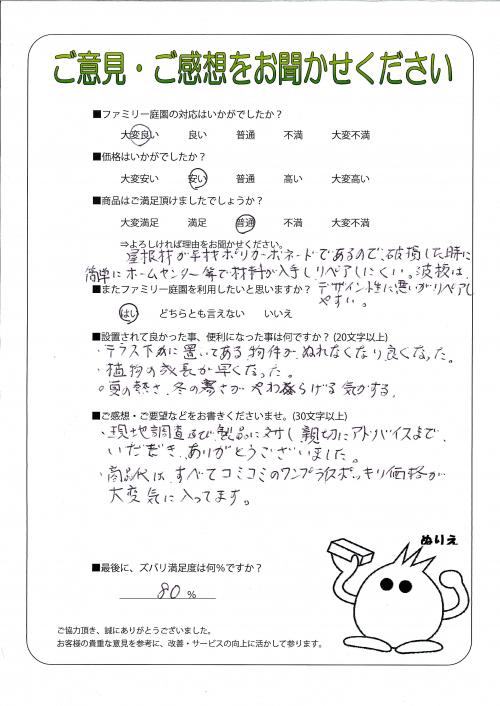 ご意見・ご感想をお聞かせください
■ファミリー庭園の対応はいかがでしたか？
大変良い 良い 普通 不満 大変不満
■価格はいかがでしたか？
大変安い 安い 普通 高い 大変高い
■商品はご満足頂けましたでしょうか？
大変満足 満足 普通 不満 大変不満
⇒よろしければ理由をお聞かせください。
屋根材が平材ポリカーボネードであるので、破損した時に
簡単にホームセンター等で材料が入手しリペアしにくい。波板は、
デザイン性に悪いがリペアし
やすい。
■またファミリー庭園を利用したいと思いますか？
はい どちらとも言えない いいえ
■設置されて良かった事、便利になった事は何ですか？(20文字以上)
・テラス下に置いてある物件が、ぬれなくなり良くなった。
・植物の成長が早くなった。
・夏の熱さ、冬の寒さがやわらげる気がする。
■ご感想・ご要望などをお書きくださいませ。(30文字以上)
・現地調査及び製品に対し親切にアドバイスまで、
いただき、ありがとうございました。
・商品代は、すべてコミコミのワンプライスポッキリ価格が
大変気に入ってます。
■最後に、ズバリ満足度は何%ですか？
80 %
ぬりえ
ご協力頂き、誠にありがとうございました。
お客様の貴重な意見を参考に、改善・サービスの向上に活かして参ります。